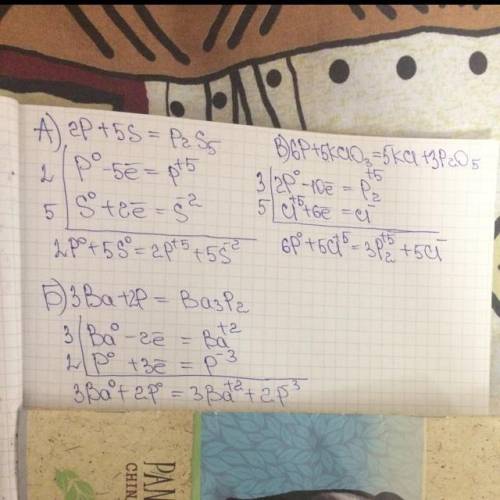 А) 2P + 5S = P₂S₅
2 | P⁰ - 5ē = P⁺⁵
5 | S⁰ + 2ē = S⁻²
2P⁰ + 5S⁰ = 2P⁺⁵ + 5S⁻²
В) 6P + 5KClO₃ = 5KCl + 3P₂O₅
3 | 2P⁰ - 10ē = P₂⁺⁵
5 | Cl⁺⁵ + 6ē = Cl⁻
6P⁰ + 5Cl⁺⁵ = 3P₂⁺⁵ + 5Cl⁻
Б) 3Ba + 2P = Ba₃P₂
3 | Ba⁰ - 2ē = Ba⁺²
2 | P⁰ + 3ē = P⁻³
3Ba⁰ + 2P⁰ = 3Ba⁺² + 2P⁻³
PAN
CHIN